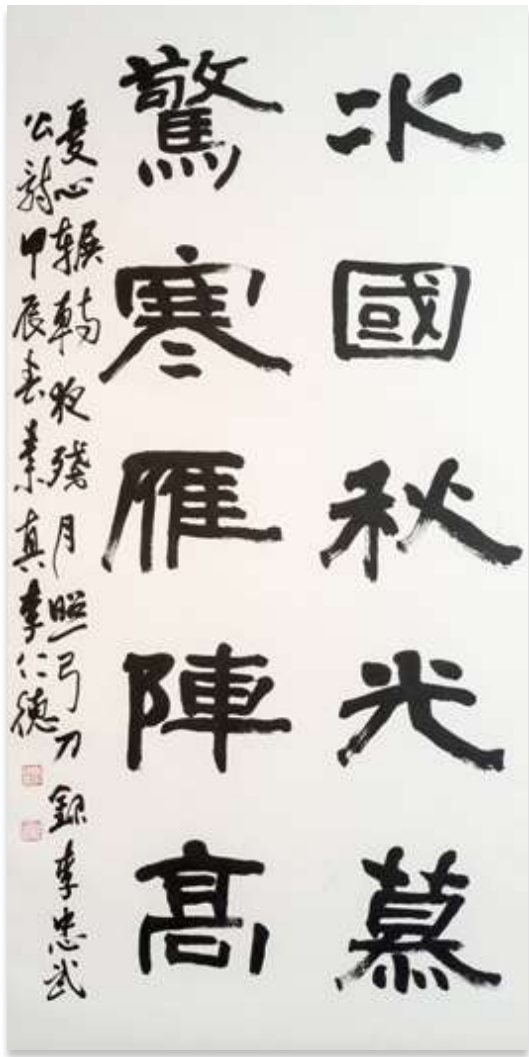 水國秋光慕
驚寒雁陣高
憂心輾轉夜殘月照弓刀錄李忠武
公詩甲辰春真李仁德